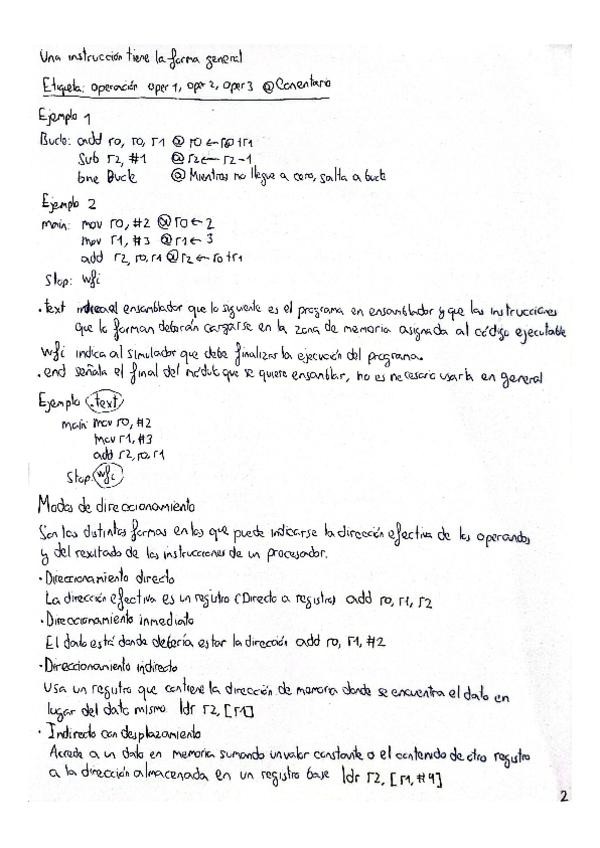 Una instrucción tiene la forma general
Etiqueta: operación oper1, oper2, oper3 @Comentario
Ejemplo 1
Bucle: add r0, r0, r1 @ r0 ← r0+r1
Sub r2, #1 @ r2 ← r2-1
bne Bucle @ Mientras no llegue a cero, salta a bucle
Ejemplo 2
main: mov r0, #2 @ r0 ← 2
mov r1, #3 @ r1 ← 3
add r2, r0, r1 @ r2 ← r0+r1
Stop: wfi
.text indica al ensamblador que lo siguiente es el programa en ensamblador y que las instrucciones
que lo forman deberán cargarse en la zona de memoria asignada al código ejecutable
wfi indica al simulador que debe finalizar la ejecución del programa.
.end señala el final del módulo que se quiere ensamblar, no es necesario usarla en general
Ejemplo .text
main: mov r0, #2
mov r1, #3
add r2, r0, r1
Stop: wfi
Modos de direccionamiento
Son las distintas formas en las que puede indicarse la dirección efectiva de los operandos
y del resultado de las instrucciones de un procesador.
· Direccionamiento directo
La dirección efectiva es un registro (Directo a registro) add r0, r1, r2
· Direccionamiento inmediato
El dato está donde debería estar la dirección add r0, r1, #2
· Direccionamiento indirecto
Usa un registro que contiene la dirección de memoria donde se encuentra el dato en
lugar del dato mismo ldr r2, [r1]
· Indirecto con desplazamiento
Accede a un dato en memoria sumando un valor constante o el contenido de otro registro
a la dirección almacenada en un registro base ldr r2, [r1, #4]
2